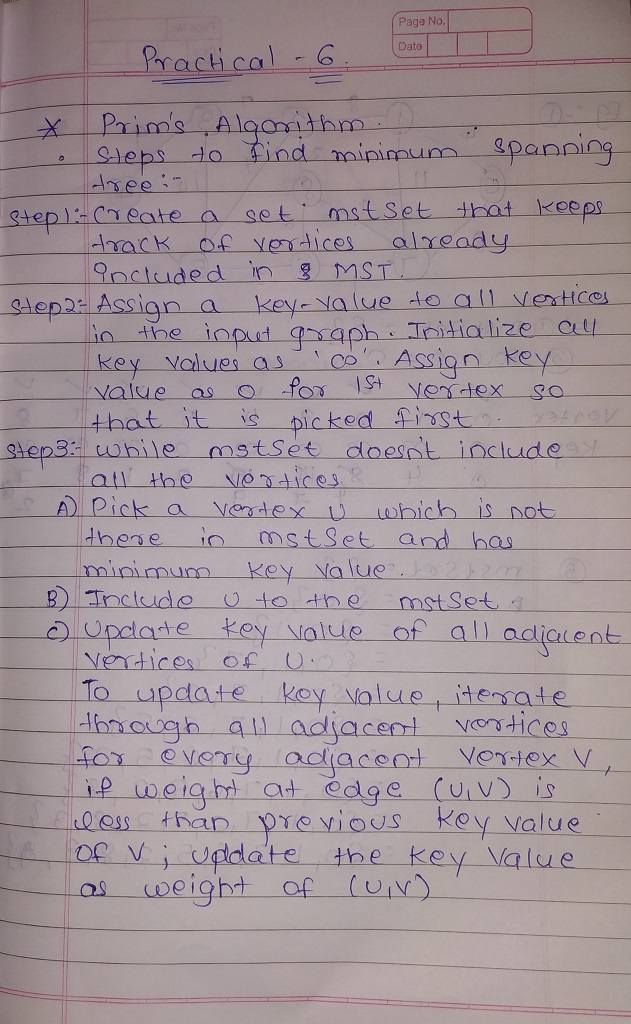 Page No.
Date
Practical - 6.
* Prim's Algorithm.
• Steps to find minimum spanning
tree :-
Step 1:- Create a set mstSet that keeps
track of vertices already
included in MST.
Step2:- Assign a key-value to all vertices
in the input graph. Initialize all
key values as '∞'. Assign key
value as 0 for 1st vertex so
that it is picked first.
Step3:- While mstSet doesn't include
all the vertices
A) Pick a vertex U which is not
there in mstSet and has
minimum key value.
B) Include U to the mstSet.
C) Update key value of all adjacent
vertices of U.
To update key value, iterate
through all adjacent vertices
for every adjacent vertex V,
if weight at edge (U,V) is
less than previous key value
of V; update the key value
as weight of (U,V)